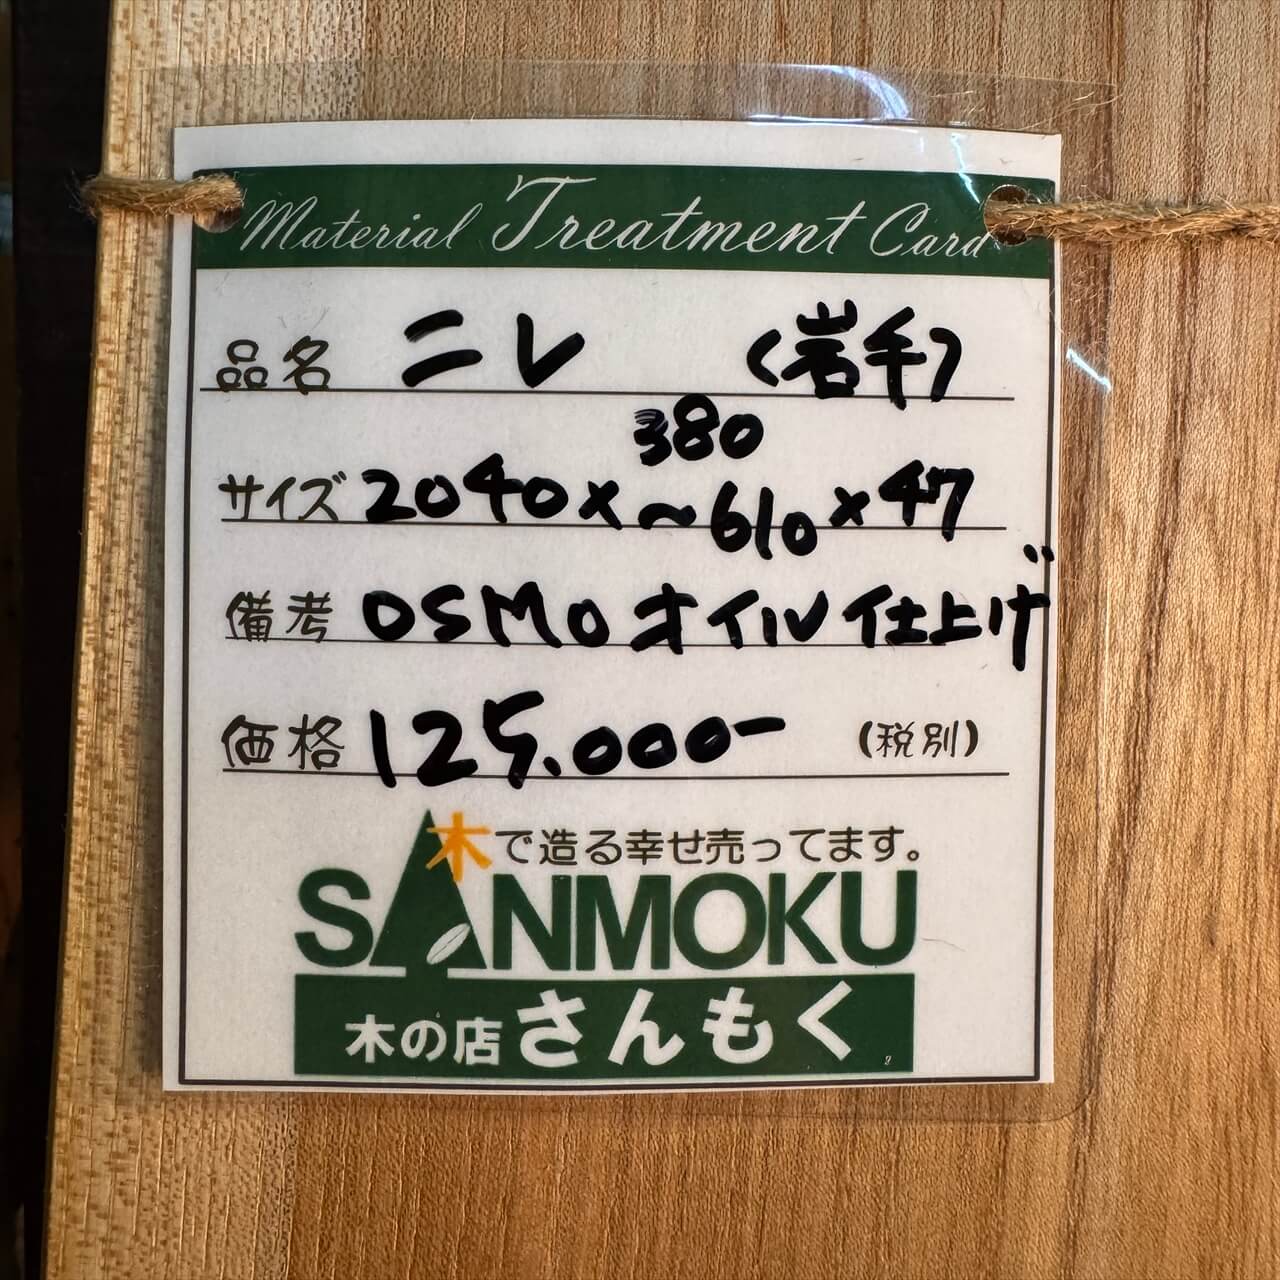 Material Treatment Card
品名 ニレ (岩手)
サイズ 2040×380～610×47
備考 OSMOオイル仕上げ
価格 125.000- (税別)
木で造る幸せ売ってます。
SANMOKU
木の店さんもく